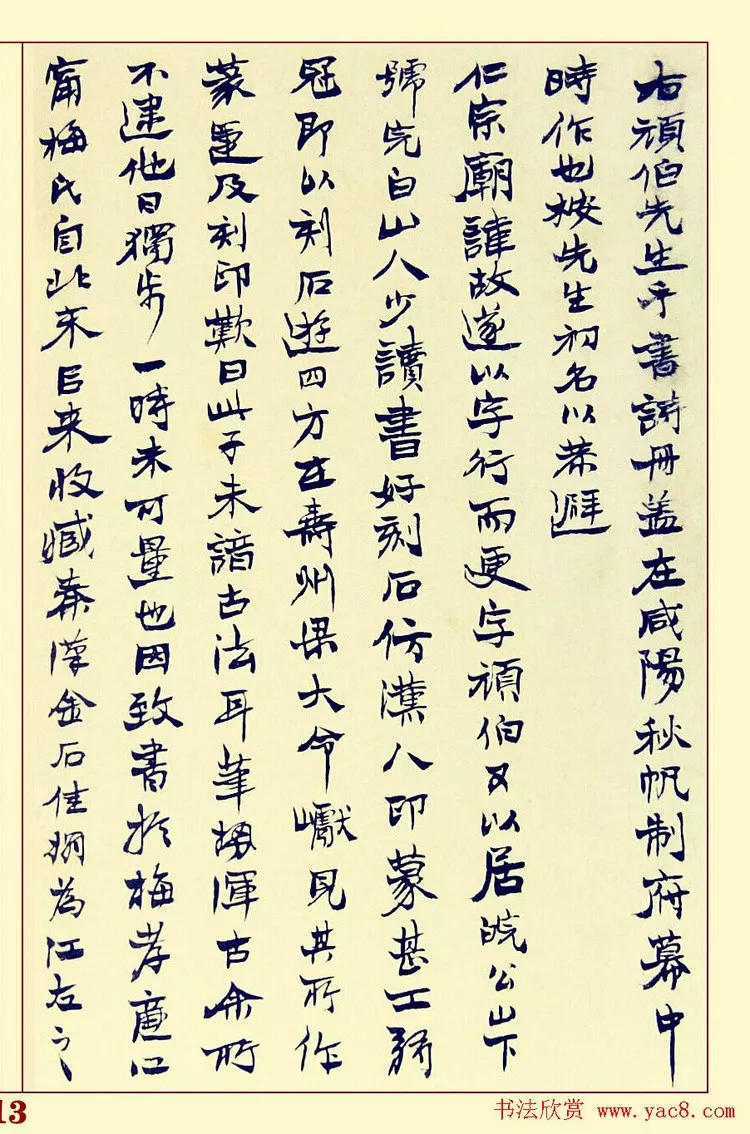 右頑伯先生手書詩冊蓋在咸陽秋帆制府幕中
時作也按先生初名以恭避
仁宗廟諱故遂以字行而更字頑伯又以居皖公山下
號完白山人少讀書好刻石仿漢人印篆甚工弱
冠即以刻石遊四方在壽州梁大令巘見其所作
篆隸及刻印歎曰此子未諳古法耳筆勢渾古余所
不逮他日獨步一時未可量也因致書於梅孝廉江
甯梅氏自北宋以來收臧秦漢金石佳搨為江左之
13
书法欣赏 www.yac8.com